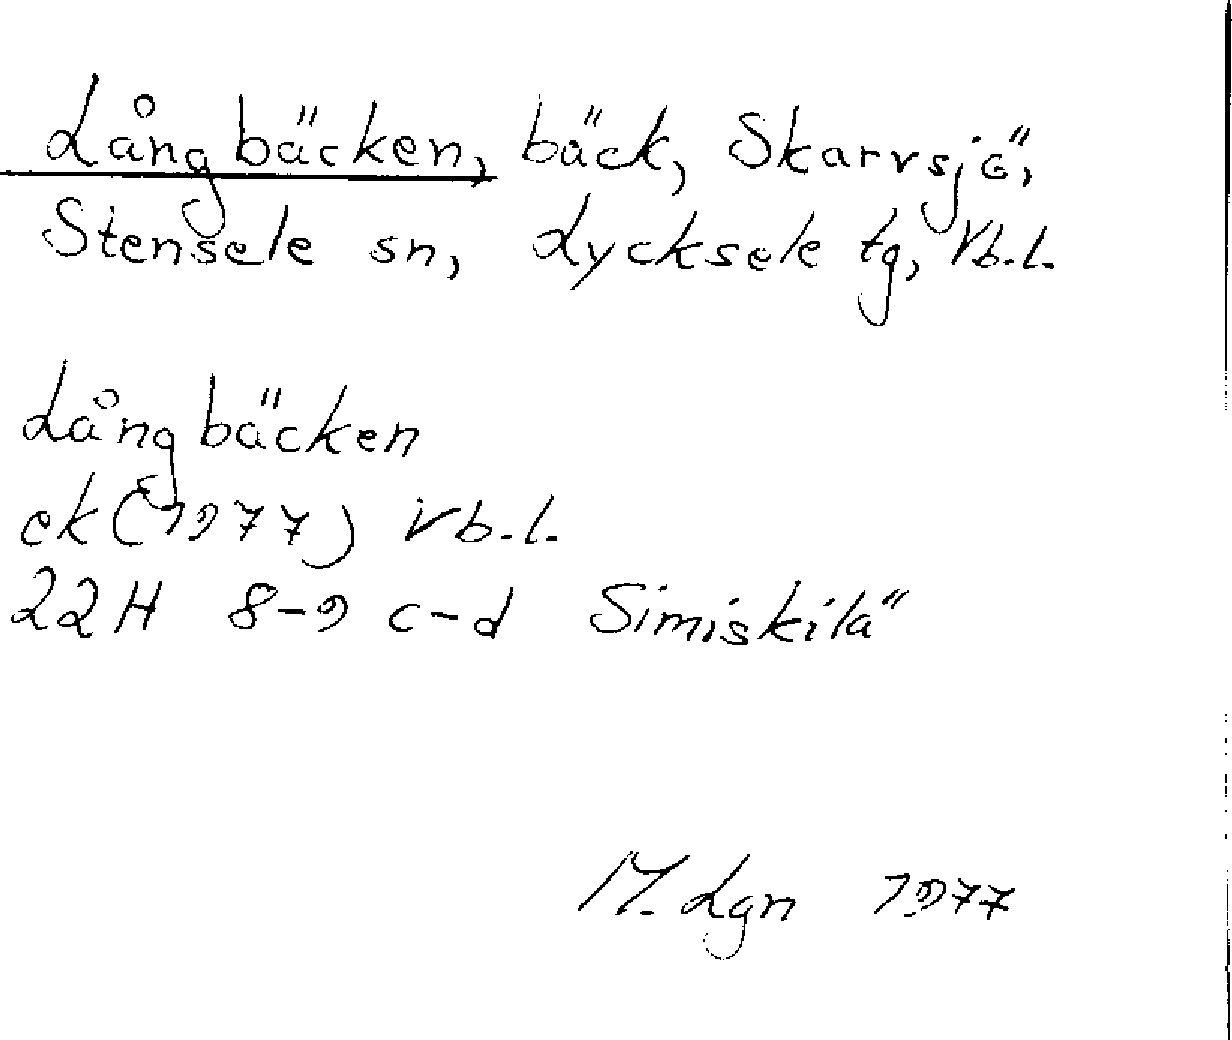 Långbäcken, bäck, Skarvsjö,
Stensele sn, Lycksele tg, Vb.l.
Långbäcken
ek (1977) Vb.l.
22H 8-9 c-d Simiskilä
M. Lgn 1977